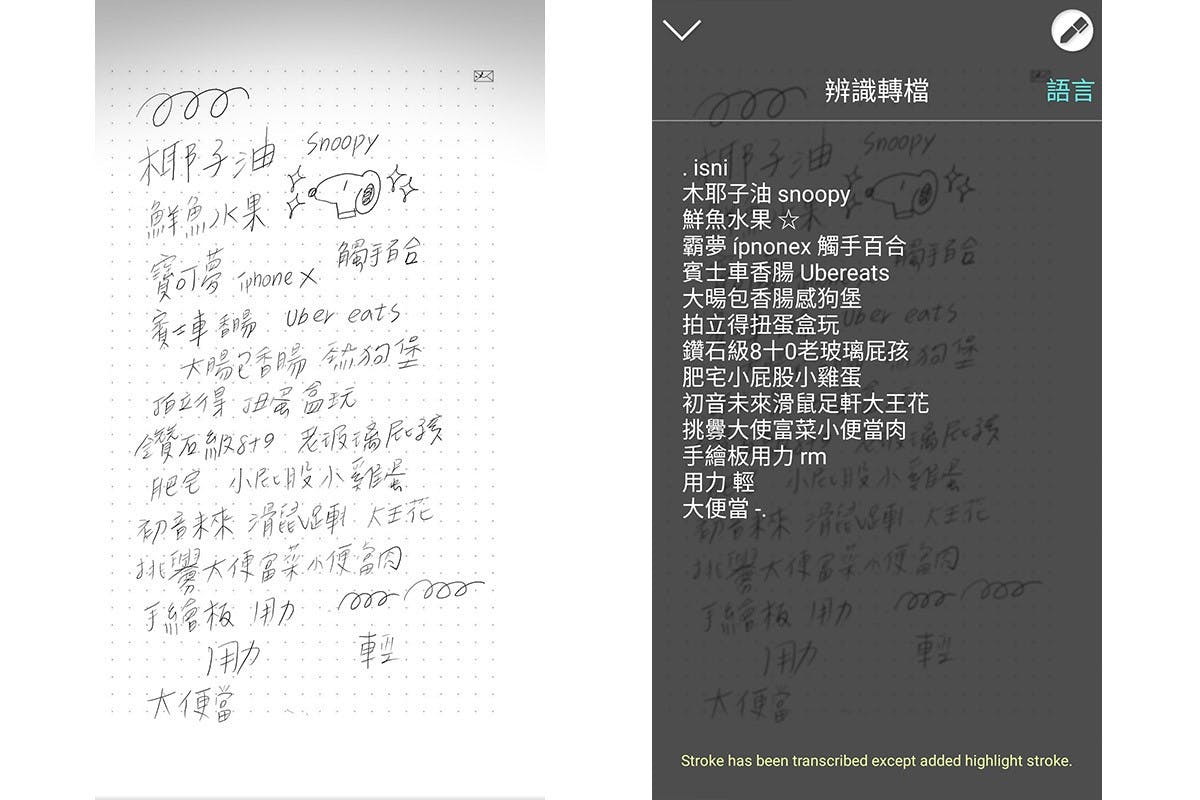 椰子油 Snoopy
鮮魚水果
寶可夢 iphone X 觸手百合
賓士車 香腸 Uber eats
大腸包香腸 熱狗堡
拍立得 扭蛋 盒玩
鑽石級8+9 老玻璃屁孩
肥宅 小屁股小雞蛋
初音未來 滑鼠 大王花
挑釁大便富菜小便富肉
手繪板 用力
用力 輕
大便當
辨識轉檔 語言
. isni
木耶子油 snoopy
鮮魚水果 ☆
霸夢 ípnonex 觸手百合
賓士車香腸 Ubereats
大暘包香腸感狗堡
拍立得扭蛋盒玩
鑽石級8十0老玻璃屁孩
肥宅小屁股小雞蛋
初音未來滑鼠足軒大王花
挑釁大使富菜小便當肉
手繪板用力 rm
用力 輕
大便當 -.
Stroke has been transcribed except added highlight stroke.